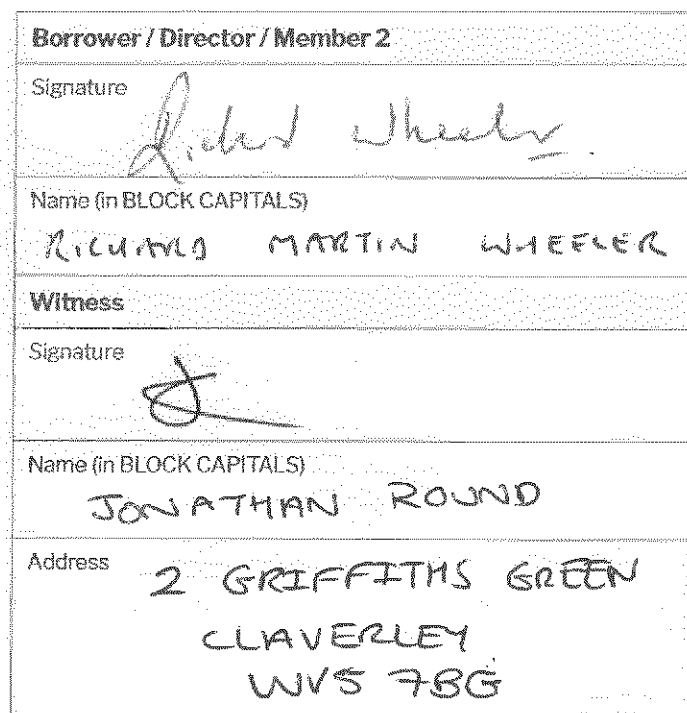 Borrower / Director / Member 2
Signature
Richard Wheeler
Name (in BLOCK CAPITALS)
RICHARD MARTIN WHEELER
Witness
Signature
Name (in BLOCK CAPITALS)
JONATHAN ROUND
Address
2 GRIFFITHS GREEN
CLAVERLEY
WV5 7BG